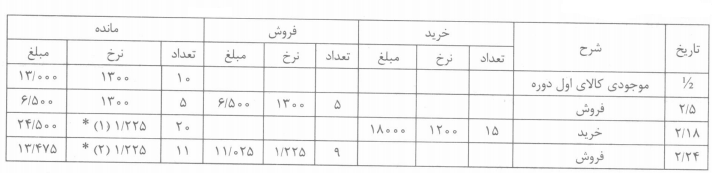 تاریخ شرح خرید فروش مانده
تعداد نرخ مبلغ تعداد نرخ مبلغ تعداد نرخ مبلغ
½ موجودی کالای اول دوره ۱۰ ۱۳۰۰ ۱۳/۰۰۰
۲/۵ فروش ۵ ۱۳۰۰ ۶/۵۰۰ ۵ ۱۳۰۰ ۶/۵۰۰
۲/۱۸ خرید ۱۵ ۱۲۰۰ ۱۸۰۰۰ ۲۰ ۱/۲۲۵ (۱) * ۲۴/۵۰۰
۲/۲۴ فروش ۹ ۱/۲۲۵ ۱۱/۰۲۵ ۱۱ ۱/۲۲۵ (۲) * ۱۳/۴۷۵